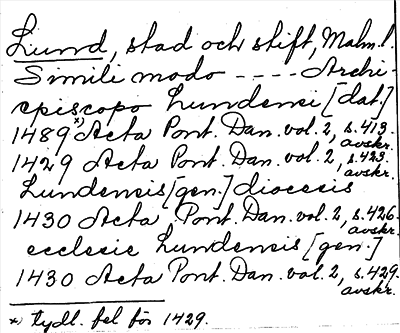 Lund, stad och stift, Malm. l.
Simili modo ---- Archi-
episcopo Lundensi [dat.]
1489 x) Acta Pont. Dan. vol. 2, s. 413.
avskr.
1429 Acta Pont. Dan. vol. 2, s. 423.
avskr.
Lundensis [gen.] diocesis
1430 Acta Pont. Dan. vol. 2, s. 426.
avskr.
ecclesie Lundensis [gen.]
1430 Acta Pont. Dan. vol. 2, s. 429.
avskr.
x) tydl. fel för 1429.